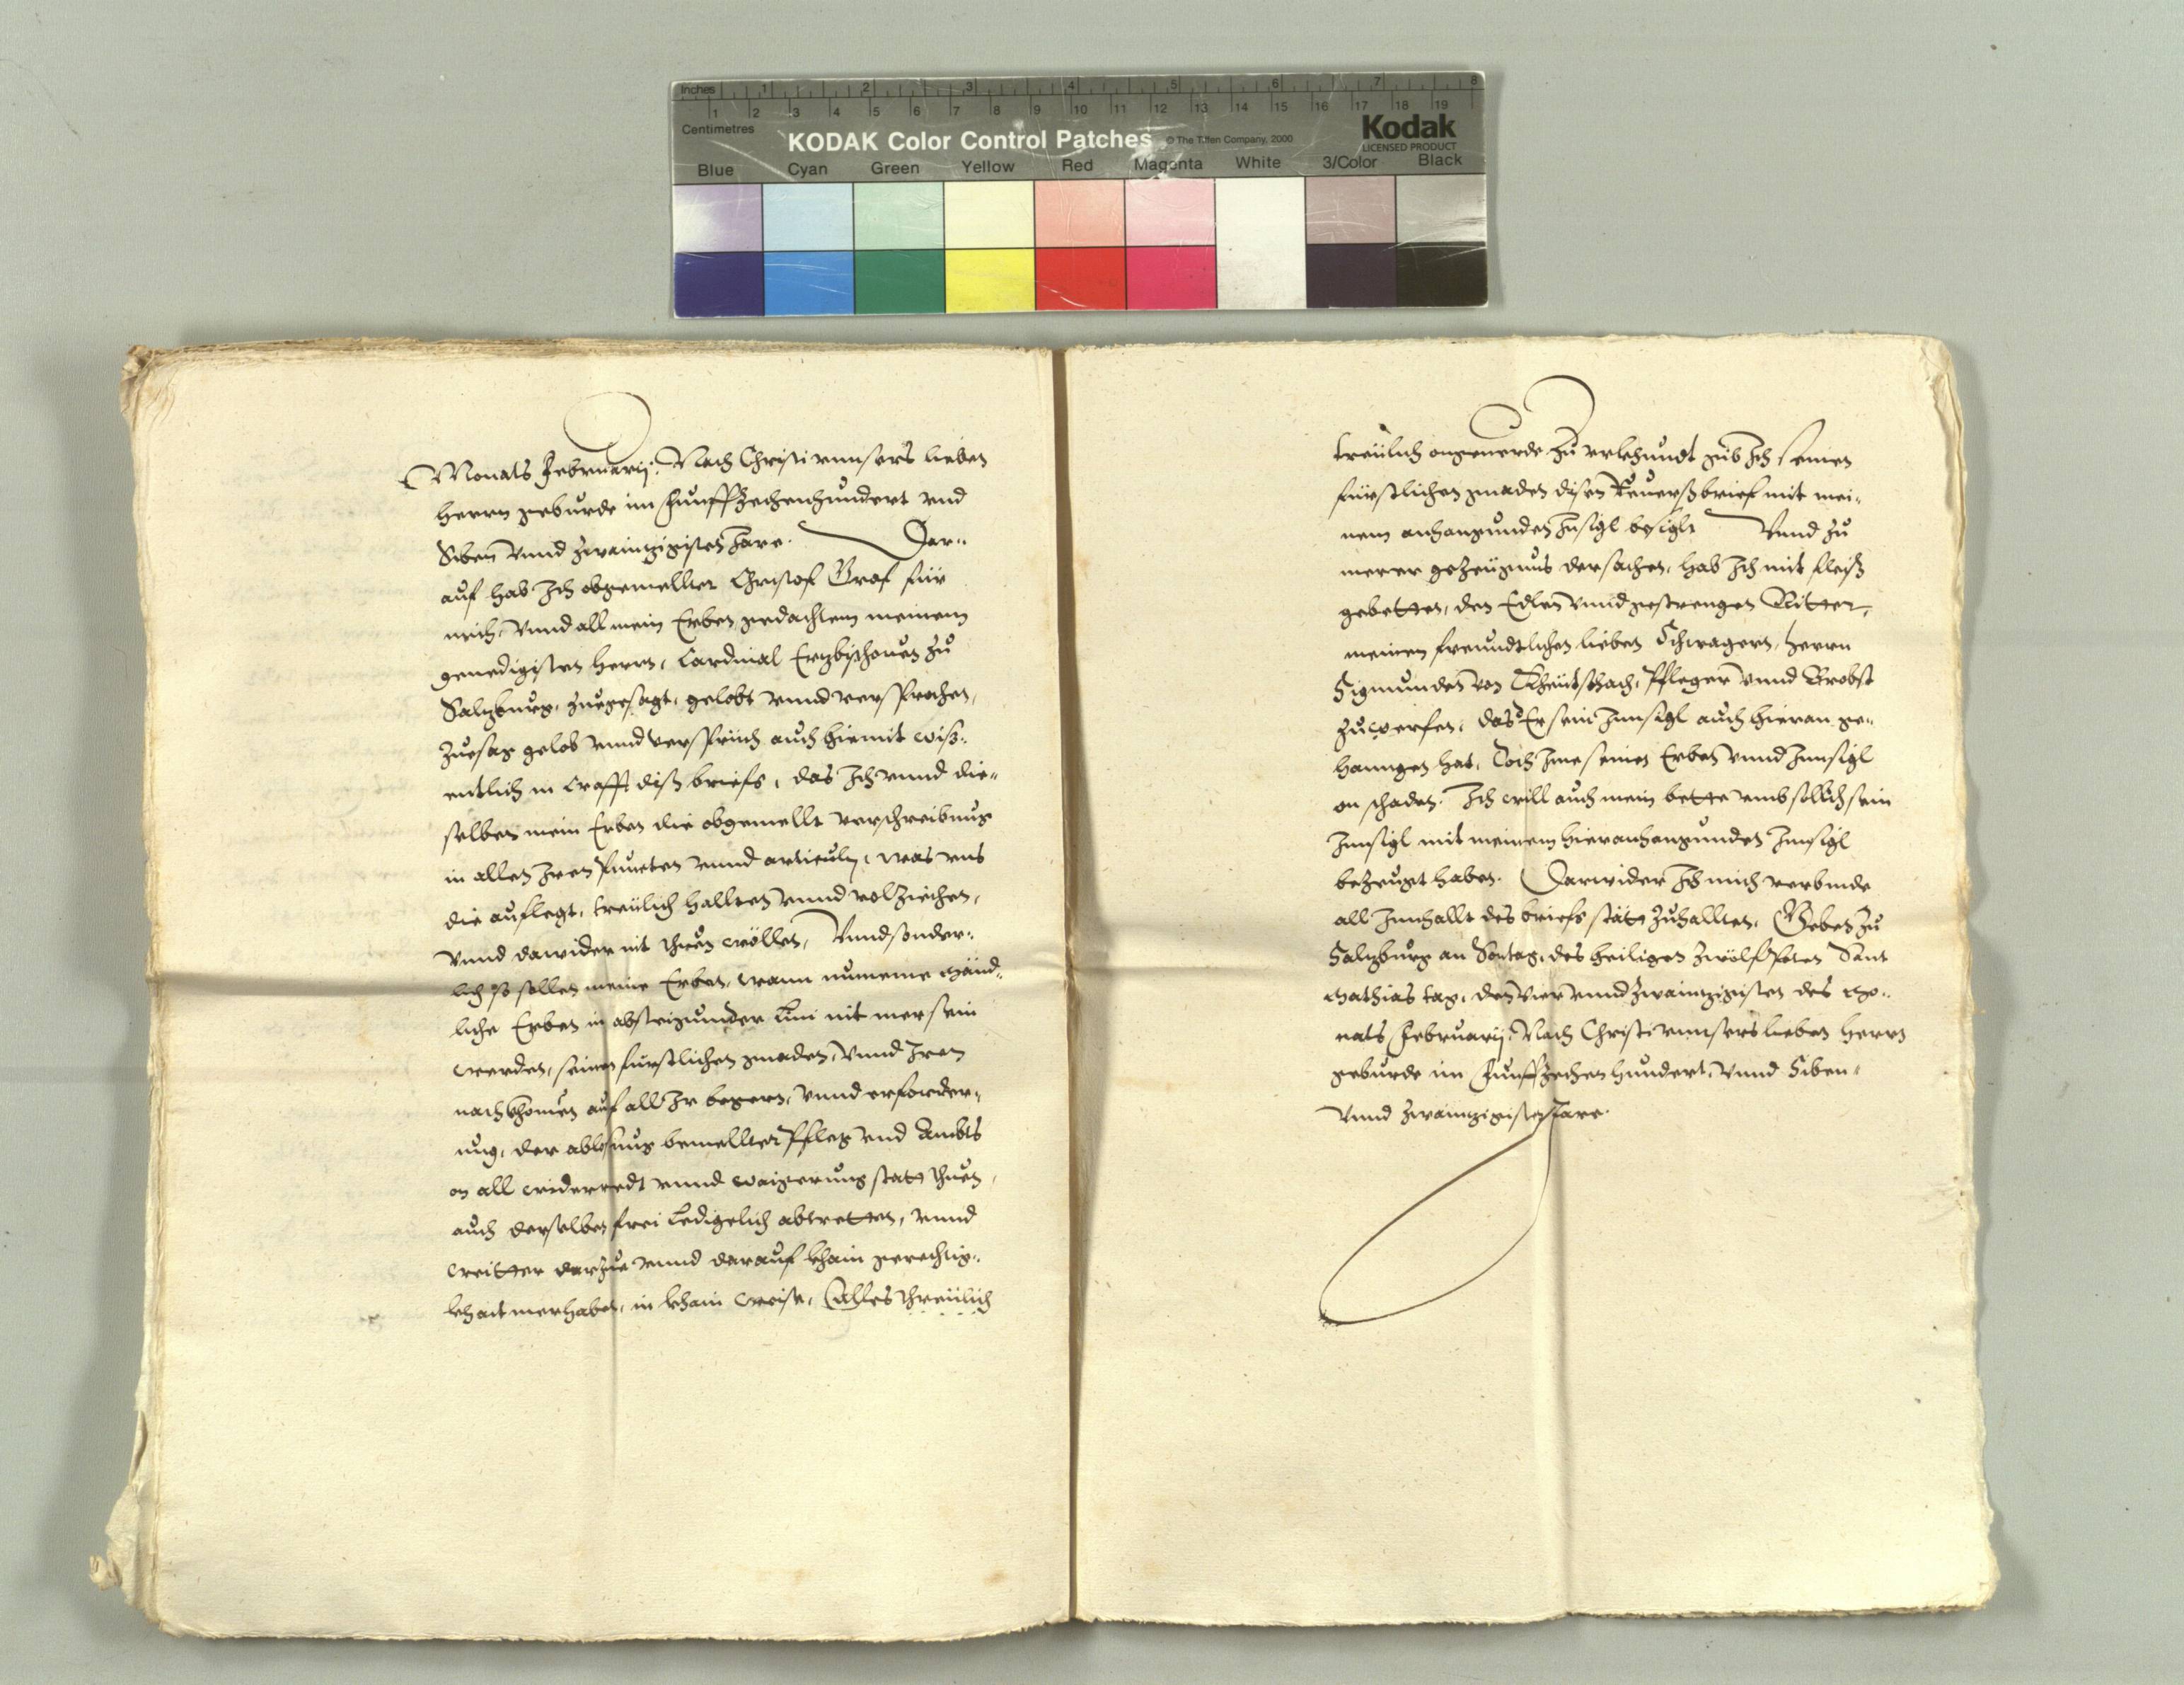 Inches 1 2 3 4 5 6 7 8
1 2 3 4 5 6 7 8 9 10 11 12 13 14 15 16 17 18 19
Centimetres
KODAK Color Control Patches © The Tiffen Company, 2000 Kodak
LICENSED PRODUCT
Blue Cyan Green Yellow Red Magenta White 3/Color Black
Monats Februarij. Nach Christi vnnsers lieben
herrn geburde im Funffzechenhundert vnd
Siben vnnd zwainzigisten Jare. Dar-
auf hab Ich obgemellter Christof Graf für
mich, vnnd all mein Erben gedachtem meinem
genedigisten herrn, Cardinal Erzbischouen zů
Salzburg, zuegesagt, gelobt vnnd versprochen,
Zuesag gelob vnnd versprich auch hiemit wiß-
entlich in Crafft diß briefs, das Ich vnnd die-
selben mein Erben die obgemellt verschreibung
in allen Iren Puncten vnnd articuln, was vns
die auflegt, treülich hallten vnnd volziechen,
vnnd dawider nit thuen wöllen, Vnnd sonder-
lich so sollen meine Erben, wann nu meine Mänd-
liche Erben in absteigunder Lini nit mer sein
werden, seinen fürstlichen gnaden, vnnd Iren
nachkhomen auf all Ir begern, vnnd erforder-
ung, der ablosung bemellter Pfleg vnd Ambts
on all widerredt vnnd waigerung statt thuen,
auch derselben frei Ledigelich abtretten, vnnd
weitter darzue vnnd darauf khain gerechtig-
khait mer haben, in khain weise, Alles threülich
treülich ongeuerde zů vrkhundt gib Ich seinen
fürstlichen gnaden disen Reuerßbrief mit mei-
nem anhangunden Insigl besiglt Vnnd zů
merer gezeügnus der sachen, hab Ich mit fleiß
gebetten, den Edlen vnnd gestrengen Ritter,
meinen freundtlichen lieben Schwagern, herrn
Sigmunden von Kheutschach, Pfleger vnnd Brobst
zů Werfen, das Er sein Innsigl auch hieran ge-
hanngen hat, Doch Ime seinen Erben vnnd Innsigl
on schaden. Ich will auch mein bette vmb sollich sein
Innsigl mit meinem hieranhangunden Innsigl
bezeugt haben. Darwider Ich mich verbinde
all Innhallt des briefs stätt zuhallten. Geben zů
Salzburg an Sontag, des heiligen zwölfpoten Sant
Mathias tag, den Vier vnnd zwainzigisten des Mo-
nats Februarij. Nach Christi vnnsers lieben herrn
geburde im Funffzechen hundert, Vnnd Siben-
Vnnd zwainzigisten Jare.